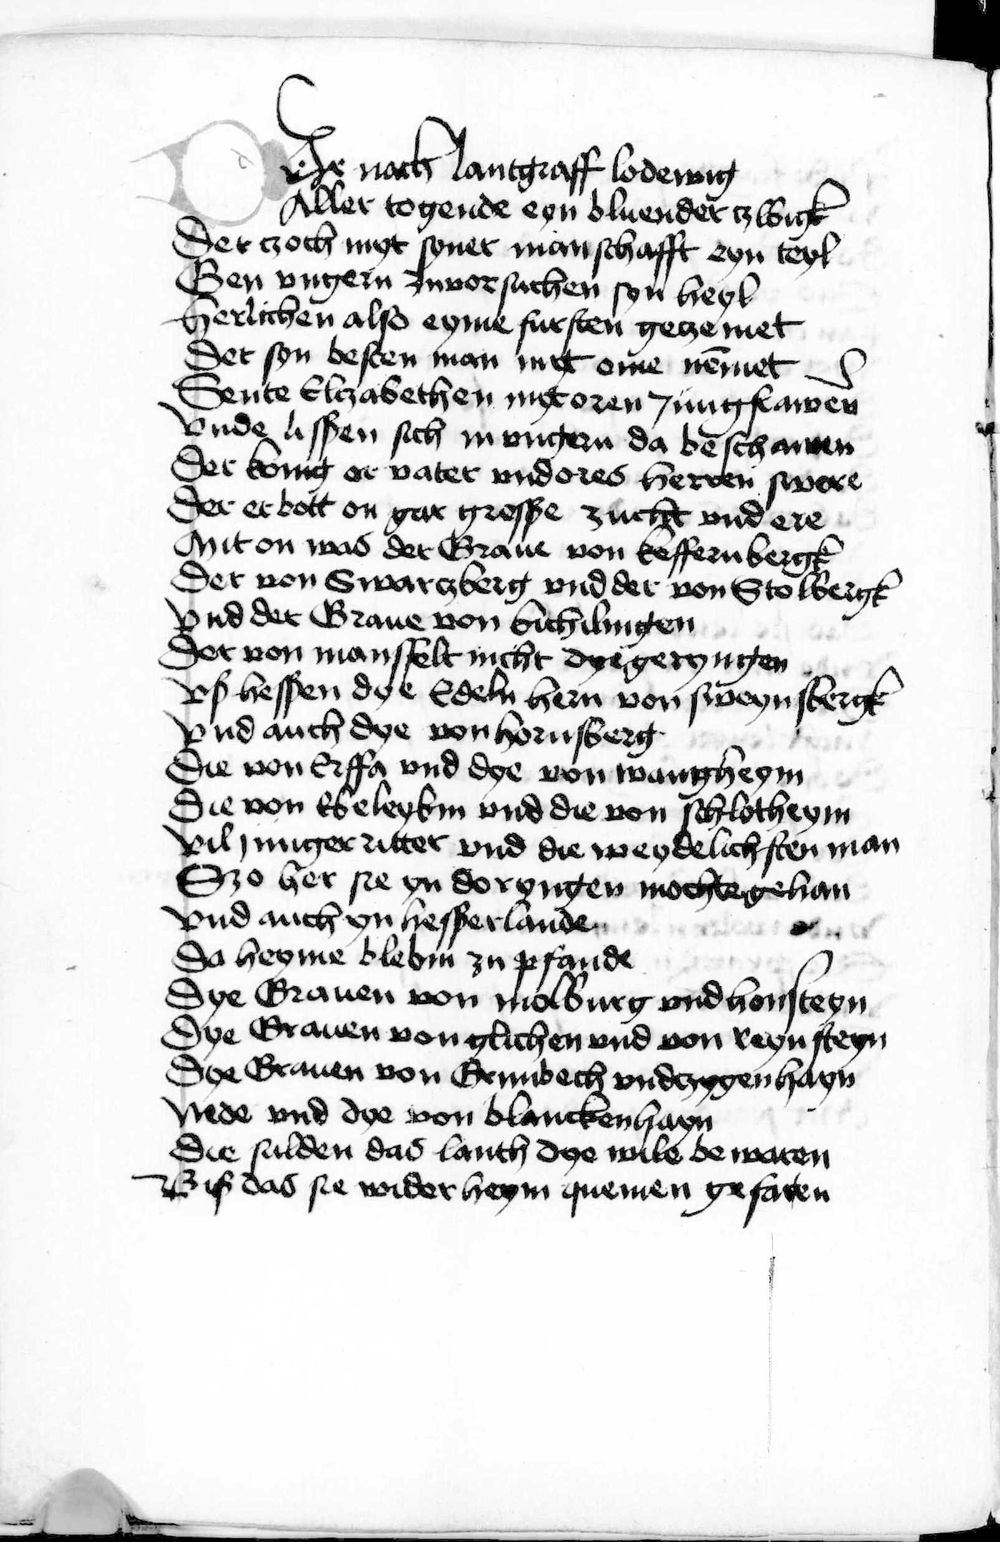 Der nach lantgraff lodewig
Aller togende eyn bluender czwigk
Der czoch myt syner manschafft eyn teyl
Gen vngern zuvorsuchen syn heyl
Herlichen also eyme fursten geczemet
Der syn besten man met ome nēmet
Sente Elczabethen myt oren Jungfrawen
Vnde lissen sich in vngern da beschauwen
Der konig er vater vnd ores herren swere
Der erbott on gar grosse zucht vnd ere
Mit on was der Graue von keffernbergk
Der von Swarczberg vnd der von Stolbergk
Vnd der Graue von bichilingen
Der von mansfelt nicht dye geryngen
Vß hessen dye Edeln hern von sweynsbergk
Vnd auch dye von hornsberg
Die von Erffa vnd dye von wangheym
Die von Ebeleybin vnd die von schlotheym
Vil junger ritter vnd die weydelichsten man
Szo her sie yn doryngen mochte gehan
Vnd auch yn hesserlande
Da heyme blebin zu pfande
Dye Grauen von molburg vnd honsteyn
Dye Grauen von glichen vnd von reynsteyn
Dye Grauen von Grunbech vnd czygenhayn
Nede vnd dye von blanckenhayn
Die sulden das lanth dye wile bewaren
Biß das sie wider heym quemen gefaren